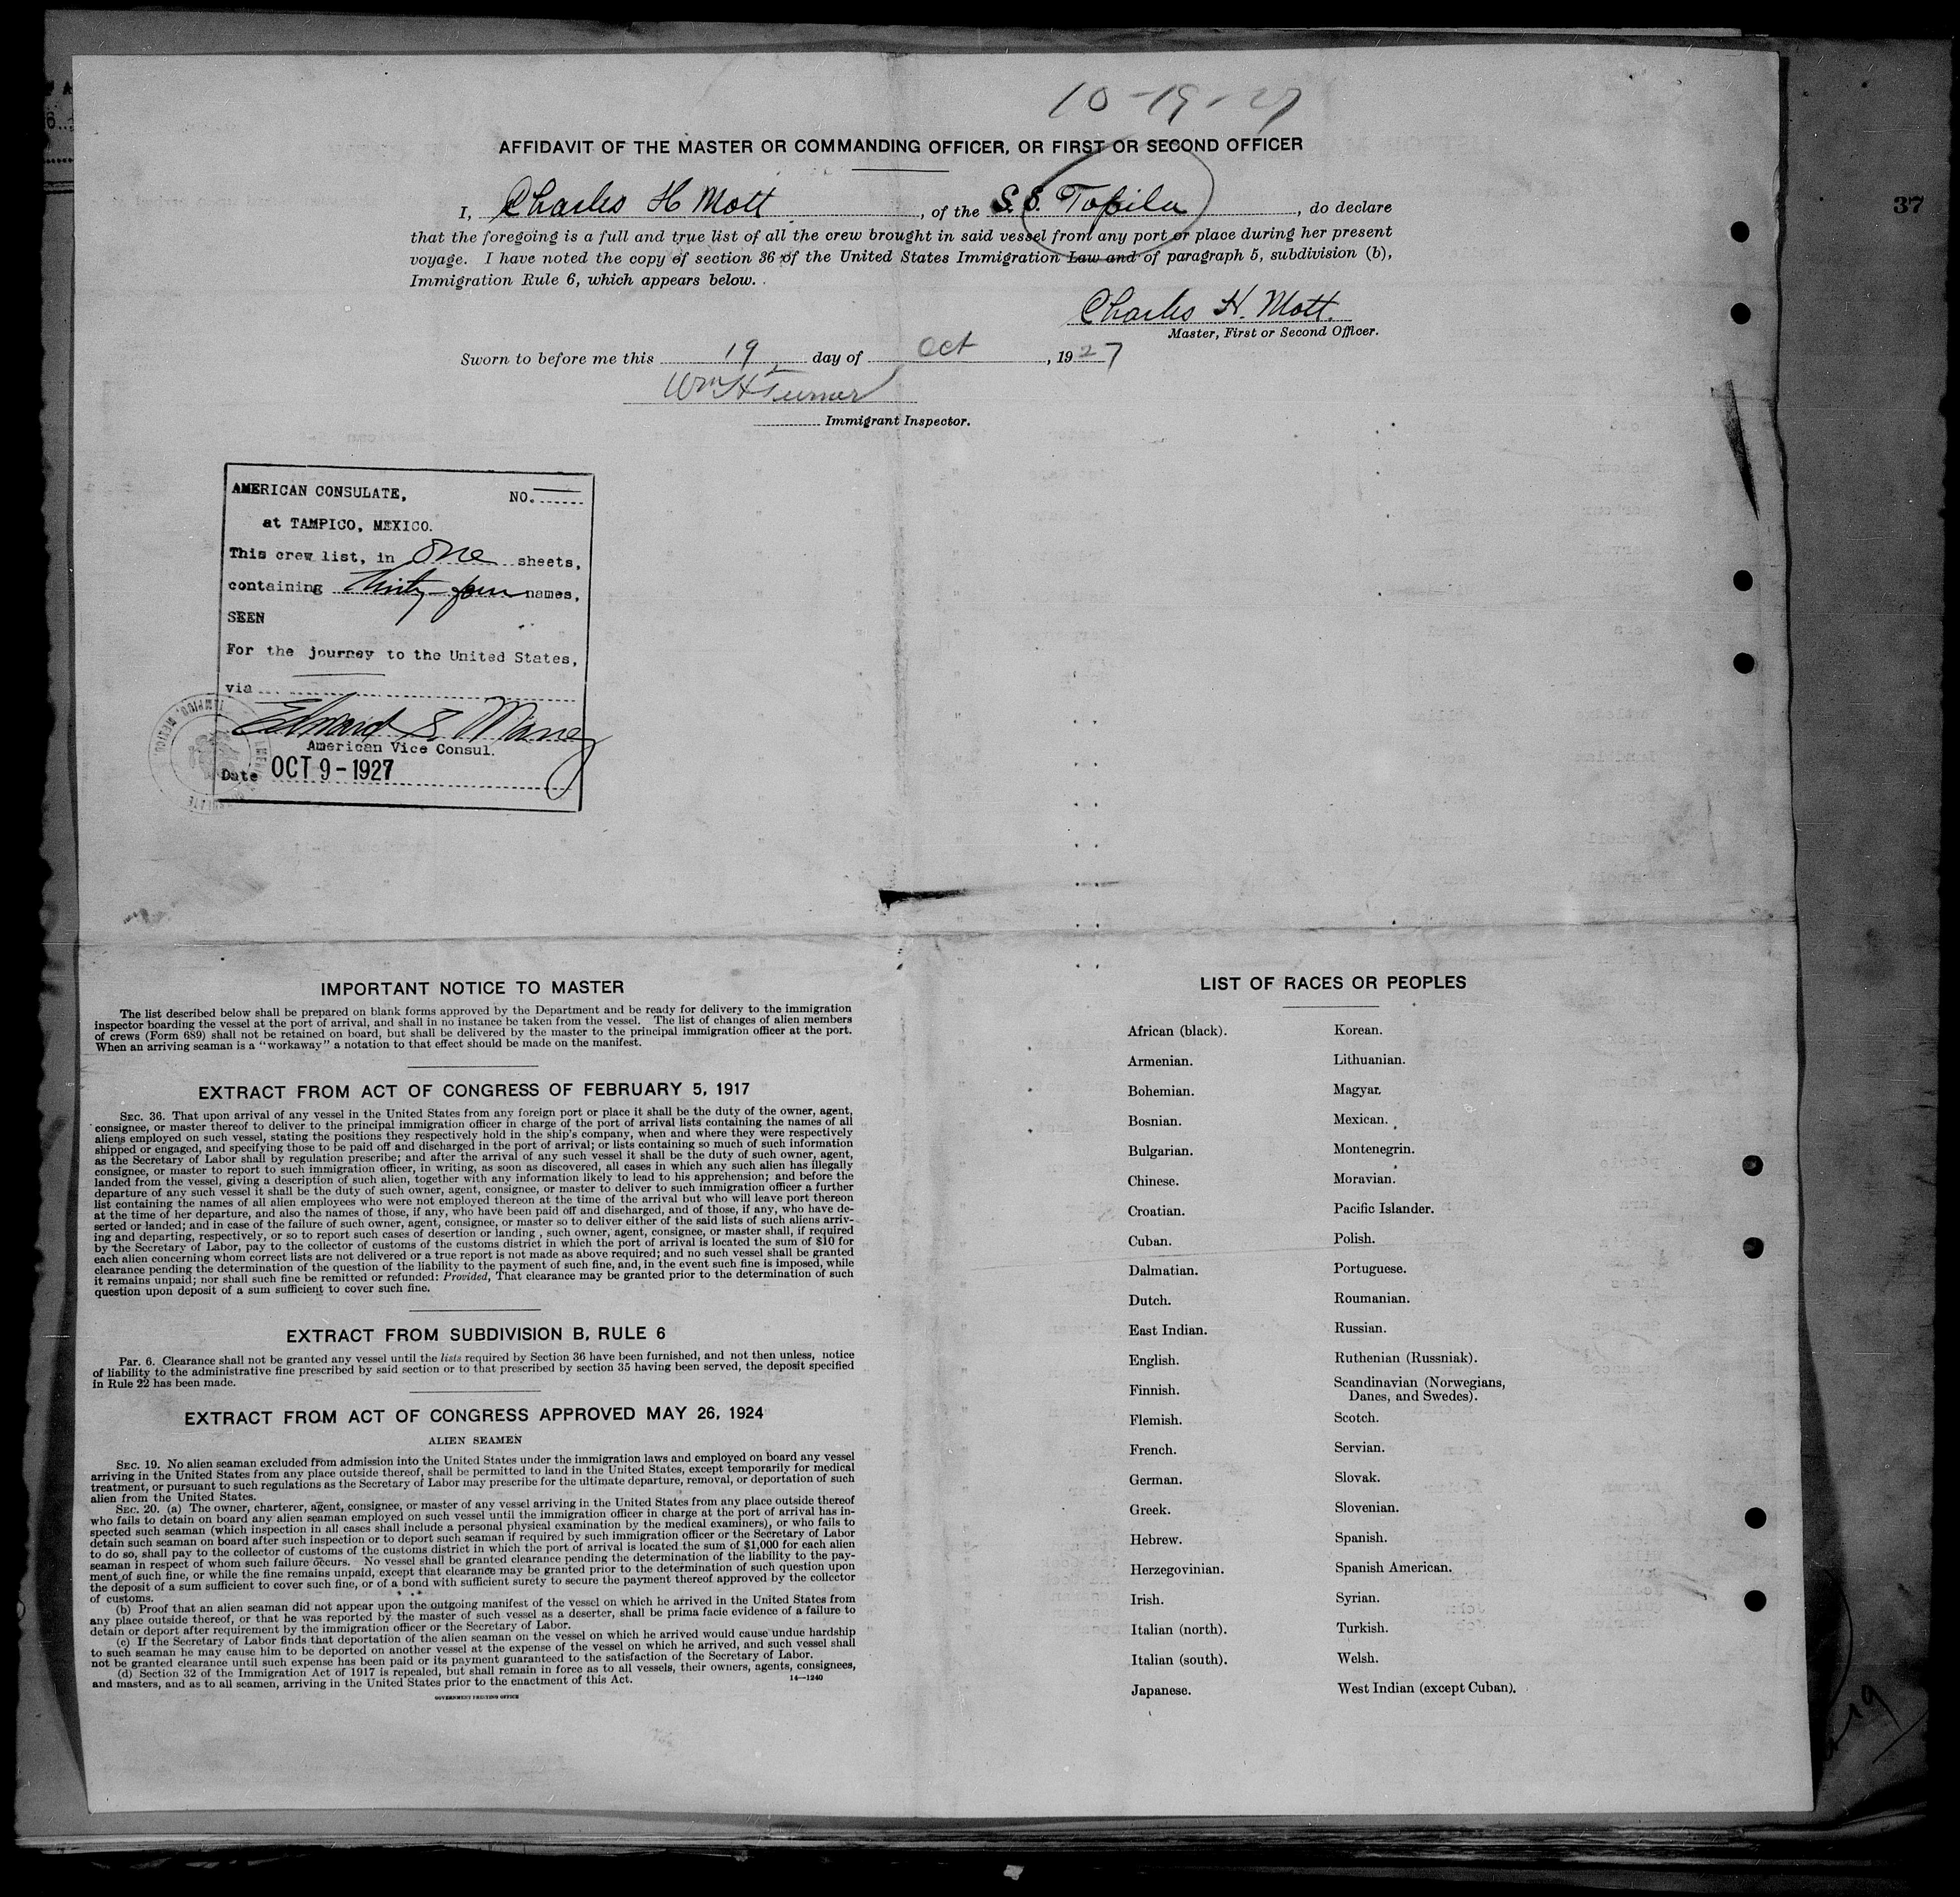 10-19-27
37
AFFIDAVIT OF THE MASTER OR COMMANDING OFFICER, OR FIRST OR SECOND OFFICER
I, Charles H Mott, of the S.S. Topila, do declare
that the foregoing is a full and true list of all the crew brought in said vessel from any port or place during her present
voyage. I have noted the copy of section 36 of the United States Immigration Law and of paragraph 5, subdivision (b),
Immigration Rule 6, which appears below.
Charles H. Mott.
Master, First or Second Officer.
Sworn to before me this 19 day of Oct, 1927
Wm H Turner
Immigrant Inspector.
AMERICAN CONSULATE, NO.
at TAMPICO, MEXICO.
This crew list, in One sheets,
containing thirty-four names,
SEEN
For the journey to the United States,
via
Edward S. Maney
American Vice Consul.
Date OCT 9-1927
IMPORTANT NOTICE TO MASTER
The list described below shall be prepared on blank forms approved by the Department and be ready for delivery to the immigration
inspector boarding the vessel at the port of arrival, and shall in no instance be taken from the vessel. The list of changes of alien members
of crews (Form 689) shall not be retained on board, but shall be delivered by the master to the principal immigration officer at the port.
When an arriving seaman is a "workaway" a notation to that effect should be made on the manifest.
EXTRACT FROM ACT OF CONGRESS OF FEBRUARY 5, 1917
SEC. 36. That upon arrival of any vessel in the United States from any foreign port or place it shall be the duty of the owner, agent,
consignee, or master thereof to deliver to the principal immigration officer in charge of the port of arrival lists containing the names of all
aliens employed on such vessel, stating the positions they respectively hold in the ship's company, when and where they were respectively
shipped or engaged, and specifying those to be paid off and discharged in the port of arrival; or lists containing so much of such information
as the Secretary of Labor shall by regulation prescribe; and after the arrival of any such vessel it shall be the duty of such owner, agent,
consignee, or master to report to such immigration officer, in writing, as soon as discovered, all cases in which any such alien has illegally
landed from the vessel, giving a description of such alien, together with any information likely to lead to his apprehension; and before the
departure of any such vessel it shall be the duty of such owner, agent, consignee, or master to deliver to such immigration officer a further
list containing the names of all alien employees who were not employed thereon at the time of the arrival but who will leave port thereon
at the time of her departure, and also the names of those, if any, who have been paid off and discharged, and of those, if any, who have de-
serted or landed; and in case of the failure of such owner, agent, consignee, or master so to deliver either of the said lists of such aliens arriv-
ing and departing, respectively, or so to report such cases of desertion or landing , such owner, agent, consignee, or master shall, if required
by the Secretary of Labor, pay to the collector of customs of the customs district in which the port of arrival is located the sum of $10 for
each alien concerning whom correct lists are not delivered or a true report is not made as above required; and no such vessel shall be granted
clearance pending the determination of the question of the liability to the payment of such fine, and, in the event such fine is imposed, while
it remains unpaid; nor shall such fine be remitted or refunded: Provided, That clearance may be granted prior to the determination of such
question upon deposit of a sum sufficient to cover such fine.
EXTRACT FROM SUBDIVISION B, RULE 6
Par. 6. Clearance shall not be granted any vessel until the lists required by Section 36 have been furnished, and not then unless, notice
of liability to the administrative fine prescribed by said section or to that prescribed by section 35 having been served, the deposit specified
in Rule 22 has been made.
EXTRACT FROM ACT OF CONGRESS APPROVED MAY 26, 1924
ALIEN SEAMEN
SEC. 19. No alien seaman excluded from admission into the United States under the immigration laws and employed on board any vessel
arriving in the United States from any place outside thereof, shall be permitted to land in the United States, except temporarily for medical
treatment, or pursuant to such regulations as the Secretary of Labor may prescribe for the ultimate departure, removal, or deportation of such
alien from the United States.
SEC. 20. (a) The owner, charterer, agent, consignee, or master of any vessel arriving in the United States from any place outside thereof
who fails to detain on board any alien seaman employed on such vessel until the immigration officer in charge at the port of arrival has in-
spected such seaman (which inspection in all cases shall include a personal physical examination by the medical examiners), or who fails to
detain such seaman on board after such inspection or to deport such seaman if required by such immigration officer or the Secretary of Labor
to do so, shall pay to the collector of customs of the customs district in which the port of arrival is located the sum of $1,000 for each alien
seaman in respect of whom such failure occurs. No vessel shall be granted clearance pending the determination of the liability to the pay-
ment of such fine, or while the fine remains unpaid, except that clearance may be granted prior to the determination of such question upon
the deposit of a sum sufficient to cover such fine, or of a bond with sufficient surety to secure the payment thereof approved by the collector
of customs.
(b) Proof that an alien seaman did not appear upon the outgoing manifest of the vessel on which he arrived in the United States from
any place outside thereof, or that he was reported by the master of such vessel as a deserter, shall be prima facie evidence of a failure to
detain or deport after requirement by the immigration officer or the Secretary of Labor.
(c) If the Secretary of Labor finds that deportation of the alien seaman on the vessel on which he arrived would cause undue hardship
to such seaman he may cause him to be deported on another vessel at the expense of the vessel on which he arrived, and such vessel shall
not be granted clearance until such expense has been paid or its payment guaranteed to the satisfaction of the Secretary of Labor.
(d) Section 32 of the Immigration Act of 1917 is repealed, but shall remain in force as to all vessels, their owners, agents, consignees,
and masters, and as to all seamen, arriving in the United States prior to the enactment of this Act. 14—1240
GOVERNMENT PRINTING OFFICE
LIST OF RACES OR PEOPLES
African (black).
Armenian.
Bohemian.
Bosnian.
Bulgarian.
Chinese.
Croatian.
Cuban.
Dalmatian.
Dutch.
East Indian.
English.
Finnish.
Flemish.
French.
German.
Greek.
Hebrew.
Herzegovinian.
Irish.
Italian (north).
Italian (south).
Japanese.
Korean.
Lithuanian.
Magyar.
Mexican.
Montenegrin.
Moravian.
Pacific Islander.
Polish.
Portuguese.
Roumanian.
Russian.
Ruthenian (Russniak).
Scandinavian (Norwegians,
Danes, and Swedes).
Scotch.
Servian.
Slovak.
Slovenian.
Spanish.
Spanish American.
Syrian.
Turkish.
Welsh.
West Indian (except Cuban).